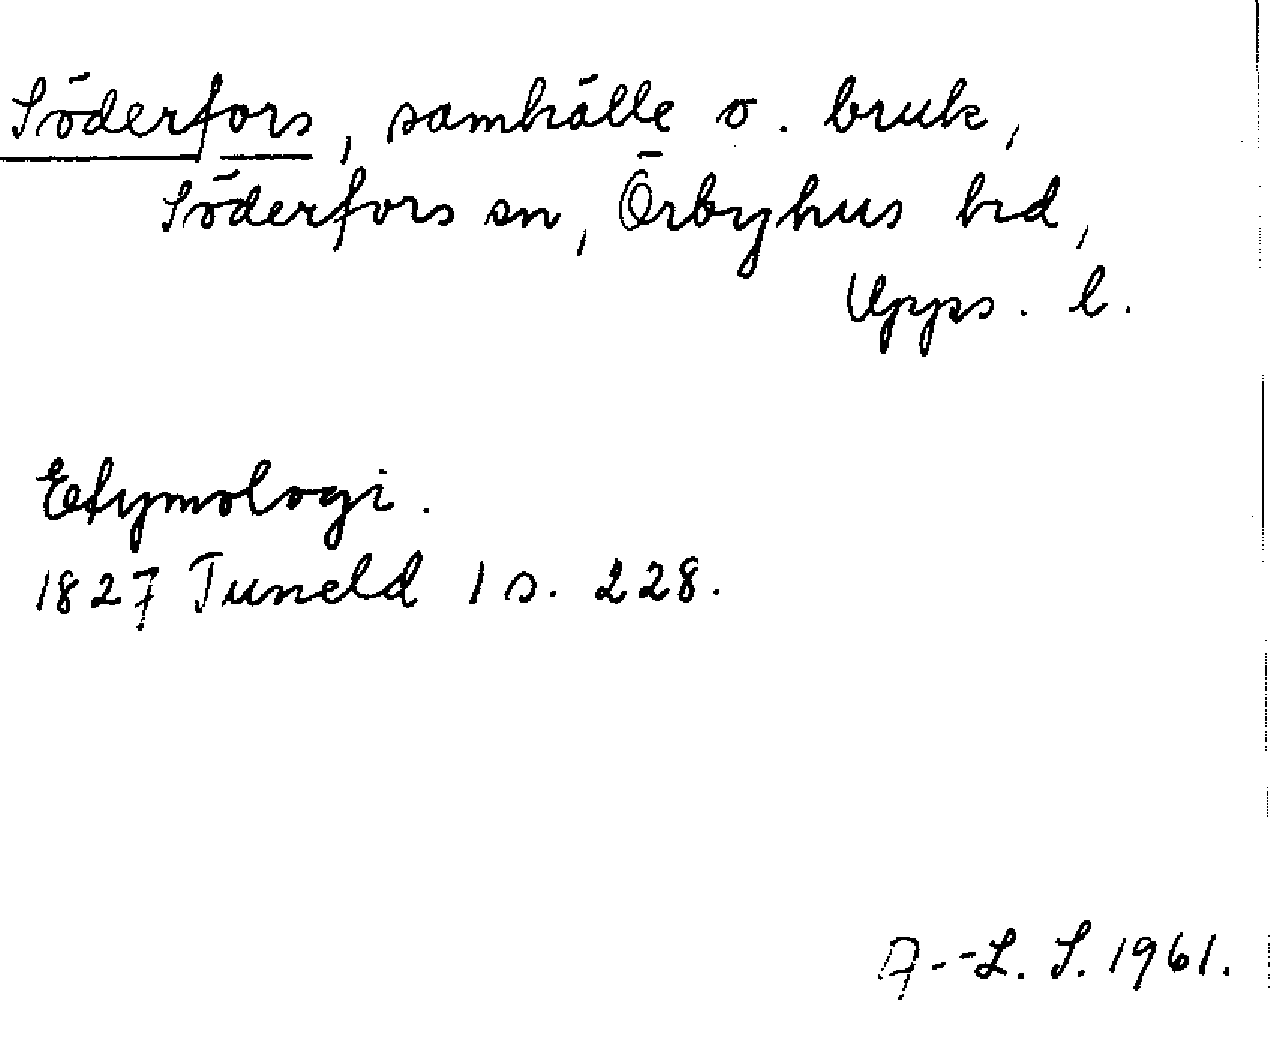 Söderfors, samhälle o. bruk,
Söderfors sn, Örbyhus hd,
Upps. l.
Etymologi.
1827 Tuneld 1 s. 228.
A.-L. S. 1961.